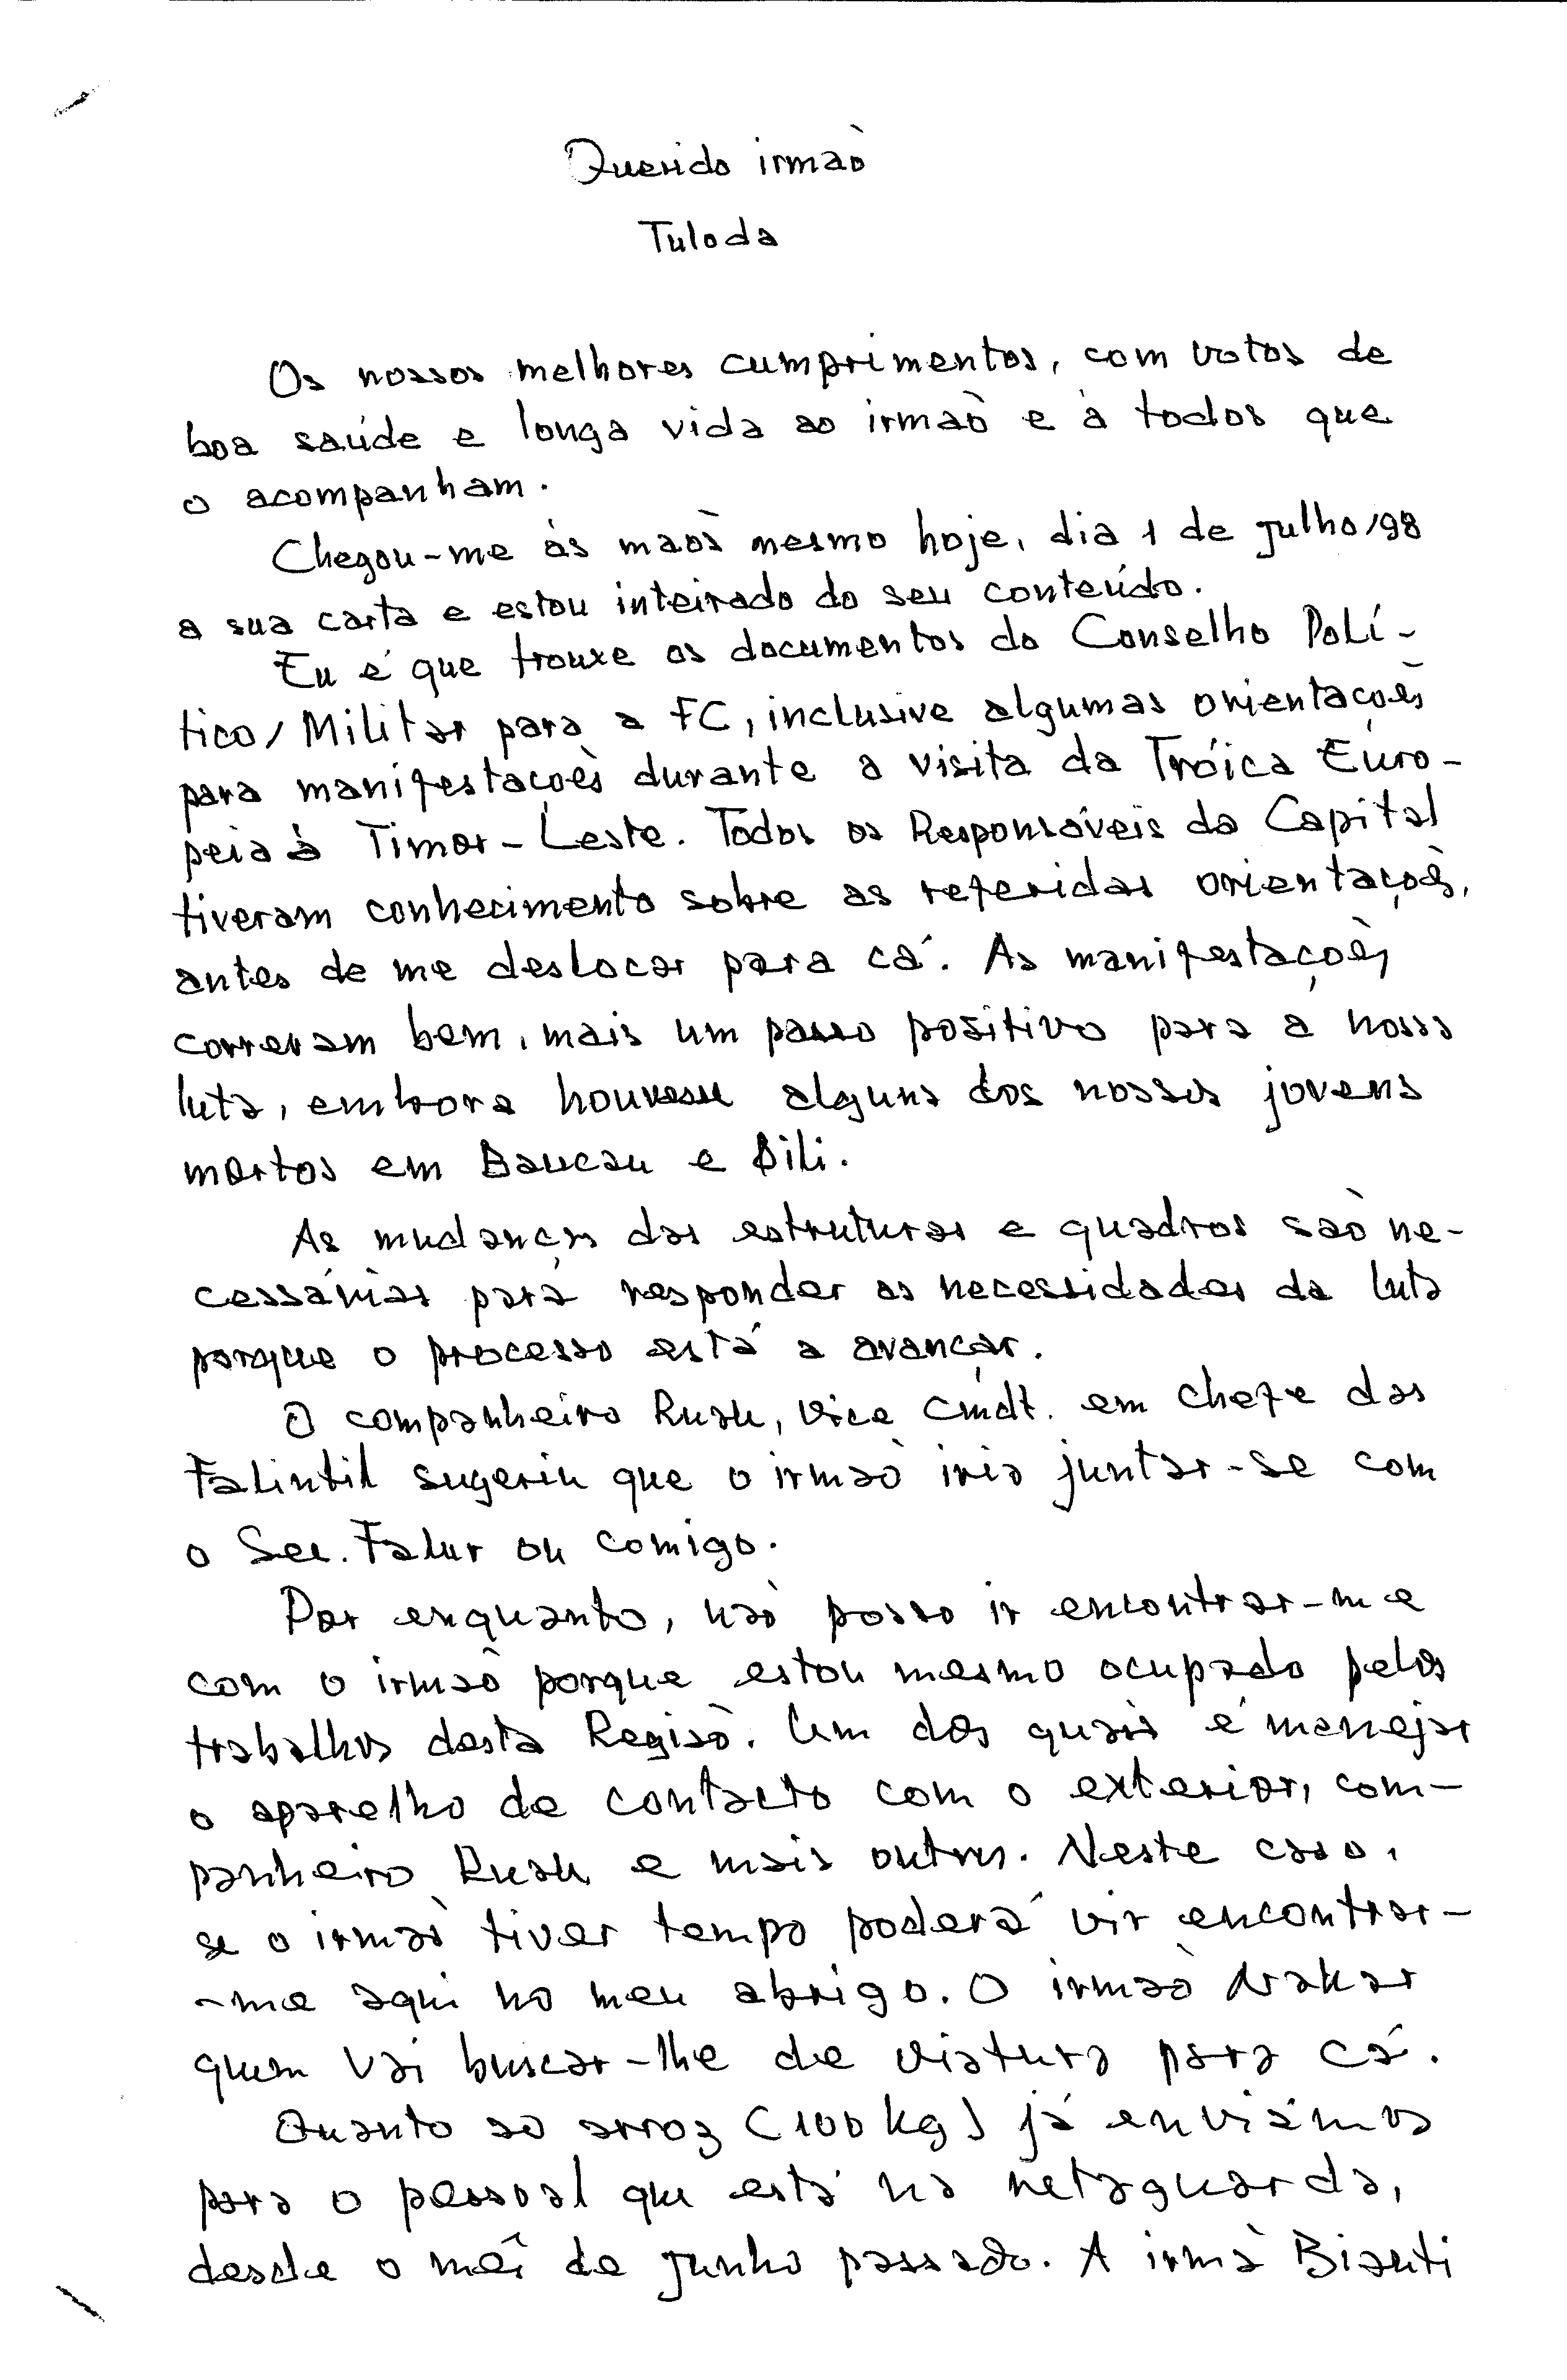 Querido irmaò
Tuloda
Os nossos melhores cumprimentos, com votos de
boa saúde e longa vida ao irmaò e à todos que
o acompanham.
Chegou-me às maòs mesmo hoje, dia 1 de Julho/98
a sua carta e estou inteirado do seu conteúdo.
Eu é que trouxe os documentos do Conselho Polí-
tico/Militar para a FC, inclusive algumas orientaçoēs
para manifestaçoès durante a visita da Tróica Euro-
peia à Timor-Leste. Todos os Responsáveis da Capital
tiveram conhecimento sobre as referidas orientaçoès,
antes de me deslocar para cá. As manifestaçoès
correram bem, mais um passo positivo para a nossa
luta, embora houvesse alguns dos nossos jovens
mortos em Baucau e Dili.
As mudanças das estruturas e quadros saò ne-
cessárias para responder as necessidades da luta
porque o processo está a avançar.
O companheiro Ruak, Vice Cmdt. em Chefe das
Falintil sugeriu que o irmaò iria juntar-se com
o Sec. Falur ou comigo.
Por enquanto, naò posso ir encontrar-me
com o irmaò porque estou mesmo ocupado pelos
trabalhos desta Regiaò. Um dos quais é manejar
o aparelho de contacto com o exterior, com-
panheiro Ruak e mais outros. Neste caso,
se o irmaò tiver tempo poderá vir encontrar-
-me aqui no meu abrigo. O irmaò
quem vai buscar-lhe de viatura para cá.
Quanto ao arroz (100 kg) já enviámos
para o pessoal que está na retaguarda,
desde o mês de Junho passado. A irmà Bianti